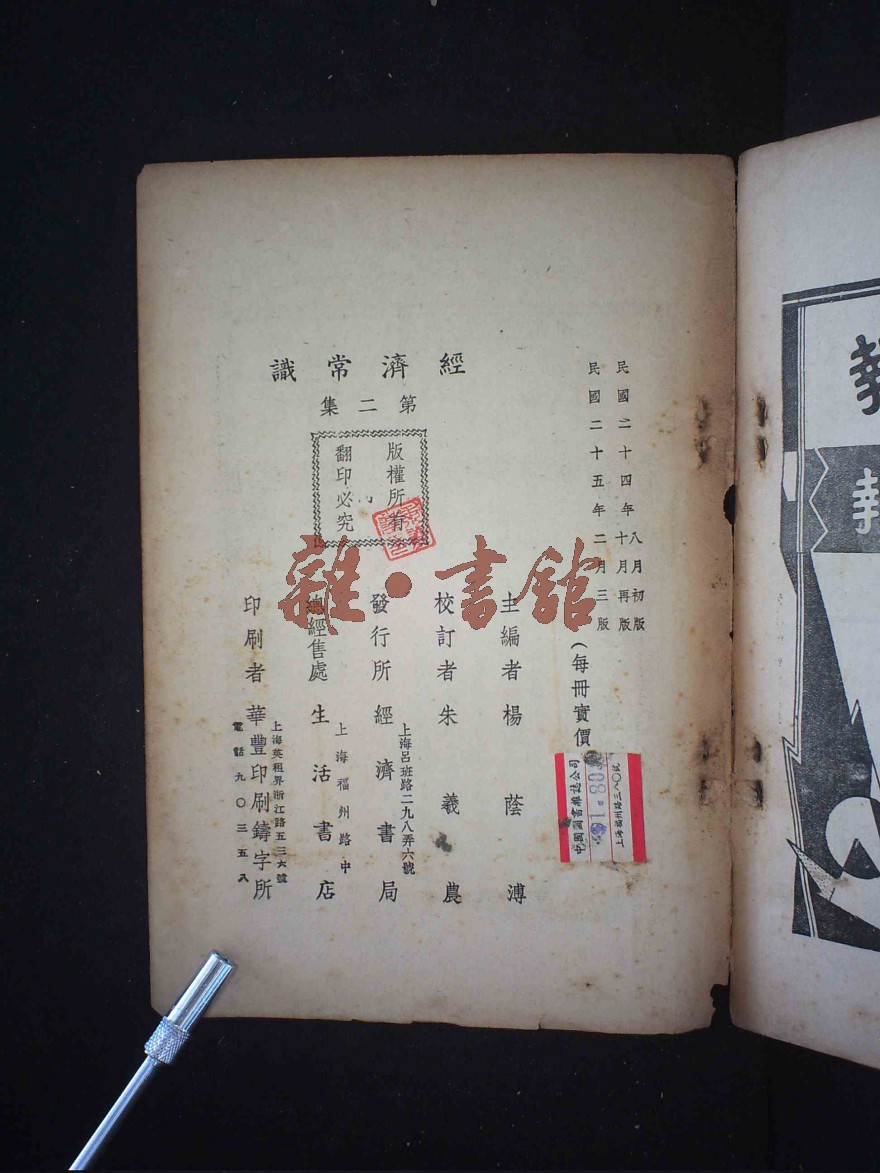 民國二十四年八月初版
十月再版
民國二十五年二月三版
(每冊實價
中國圖書雜誌公司
上海福州路三八〇號
經濟常識
第二集
版權所有
翻印必究
主編者楊蔭溥
校訂者朱羲農
發行所經濟書局
上海呂班路二九八弄六號
總經售處生活書店
上海福州路中
印刷者華豐印刷鑄字所
上海英租界浙江路五三六號
電話九〇三五八
雜·書館